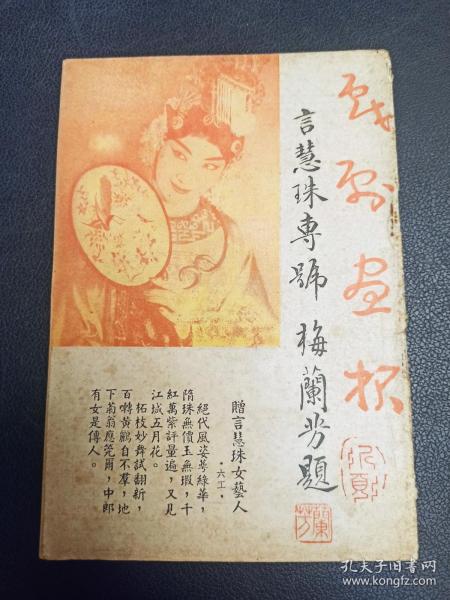 戏剧画报
言慧珠專號 梅蘭芳題
蘭芳
贈言慧珠女藝人
·六工·
絕代風姿萼綠華,
隋珠無價玉無瑕,千
紅萬紫評量遍,又見
江城五月花。
柘枝妙舞試翻新,
百囀黃鸝自不羣,地
下菊翁應莞爾,中郎
有女是傳人。
孔夫子旧书网
www.kongfz.com